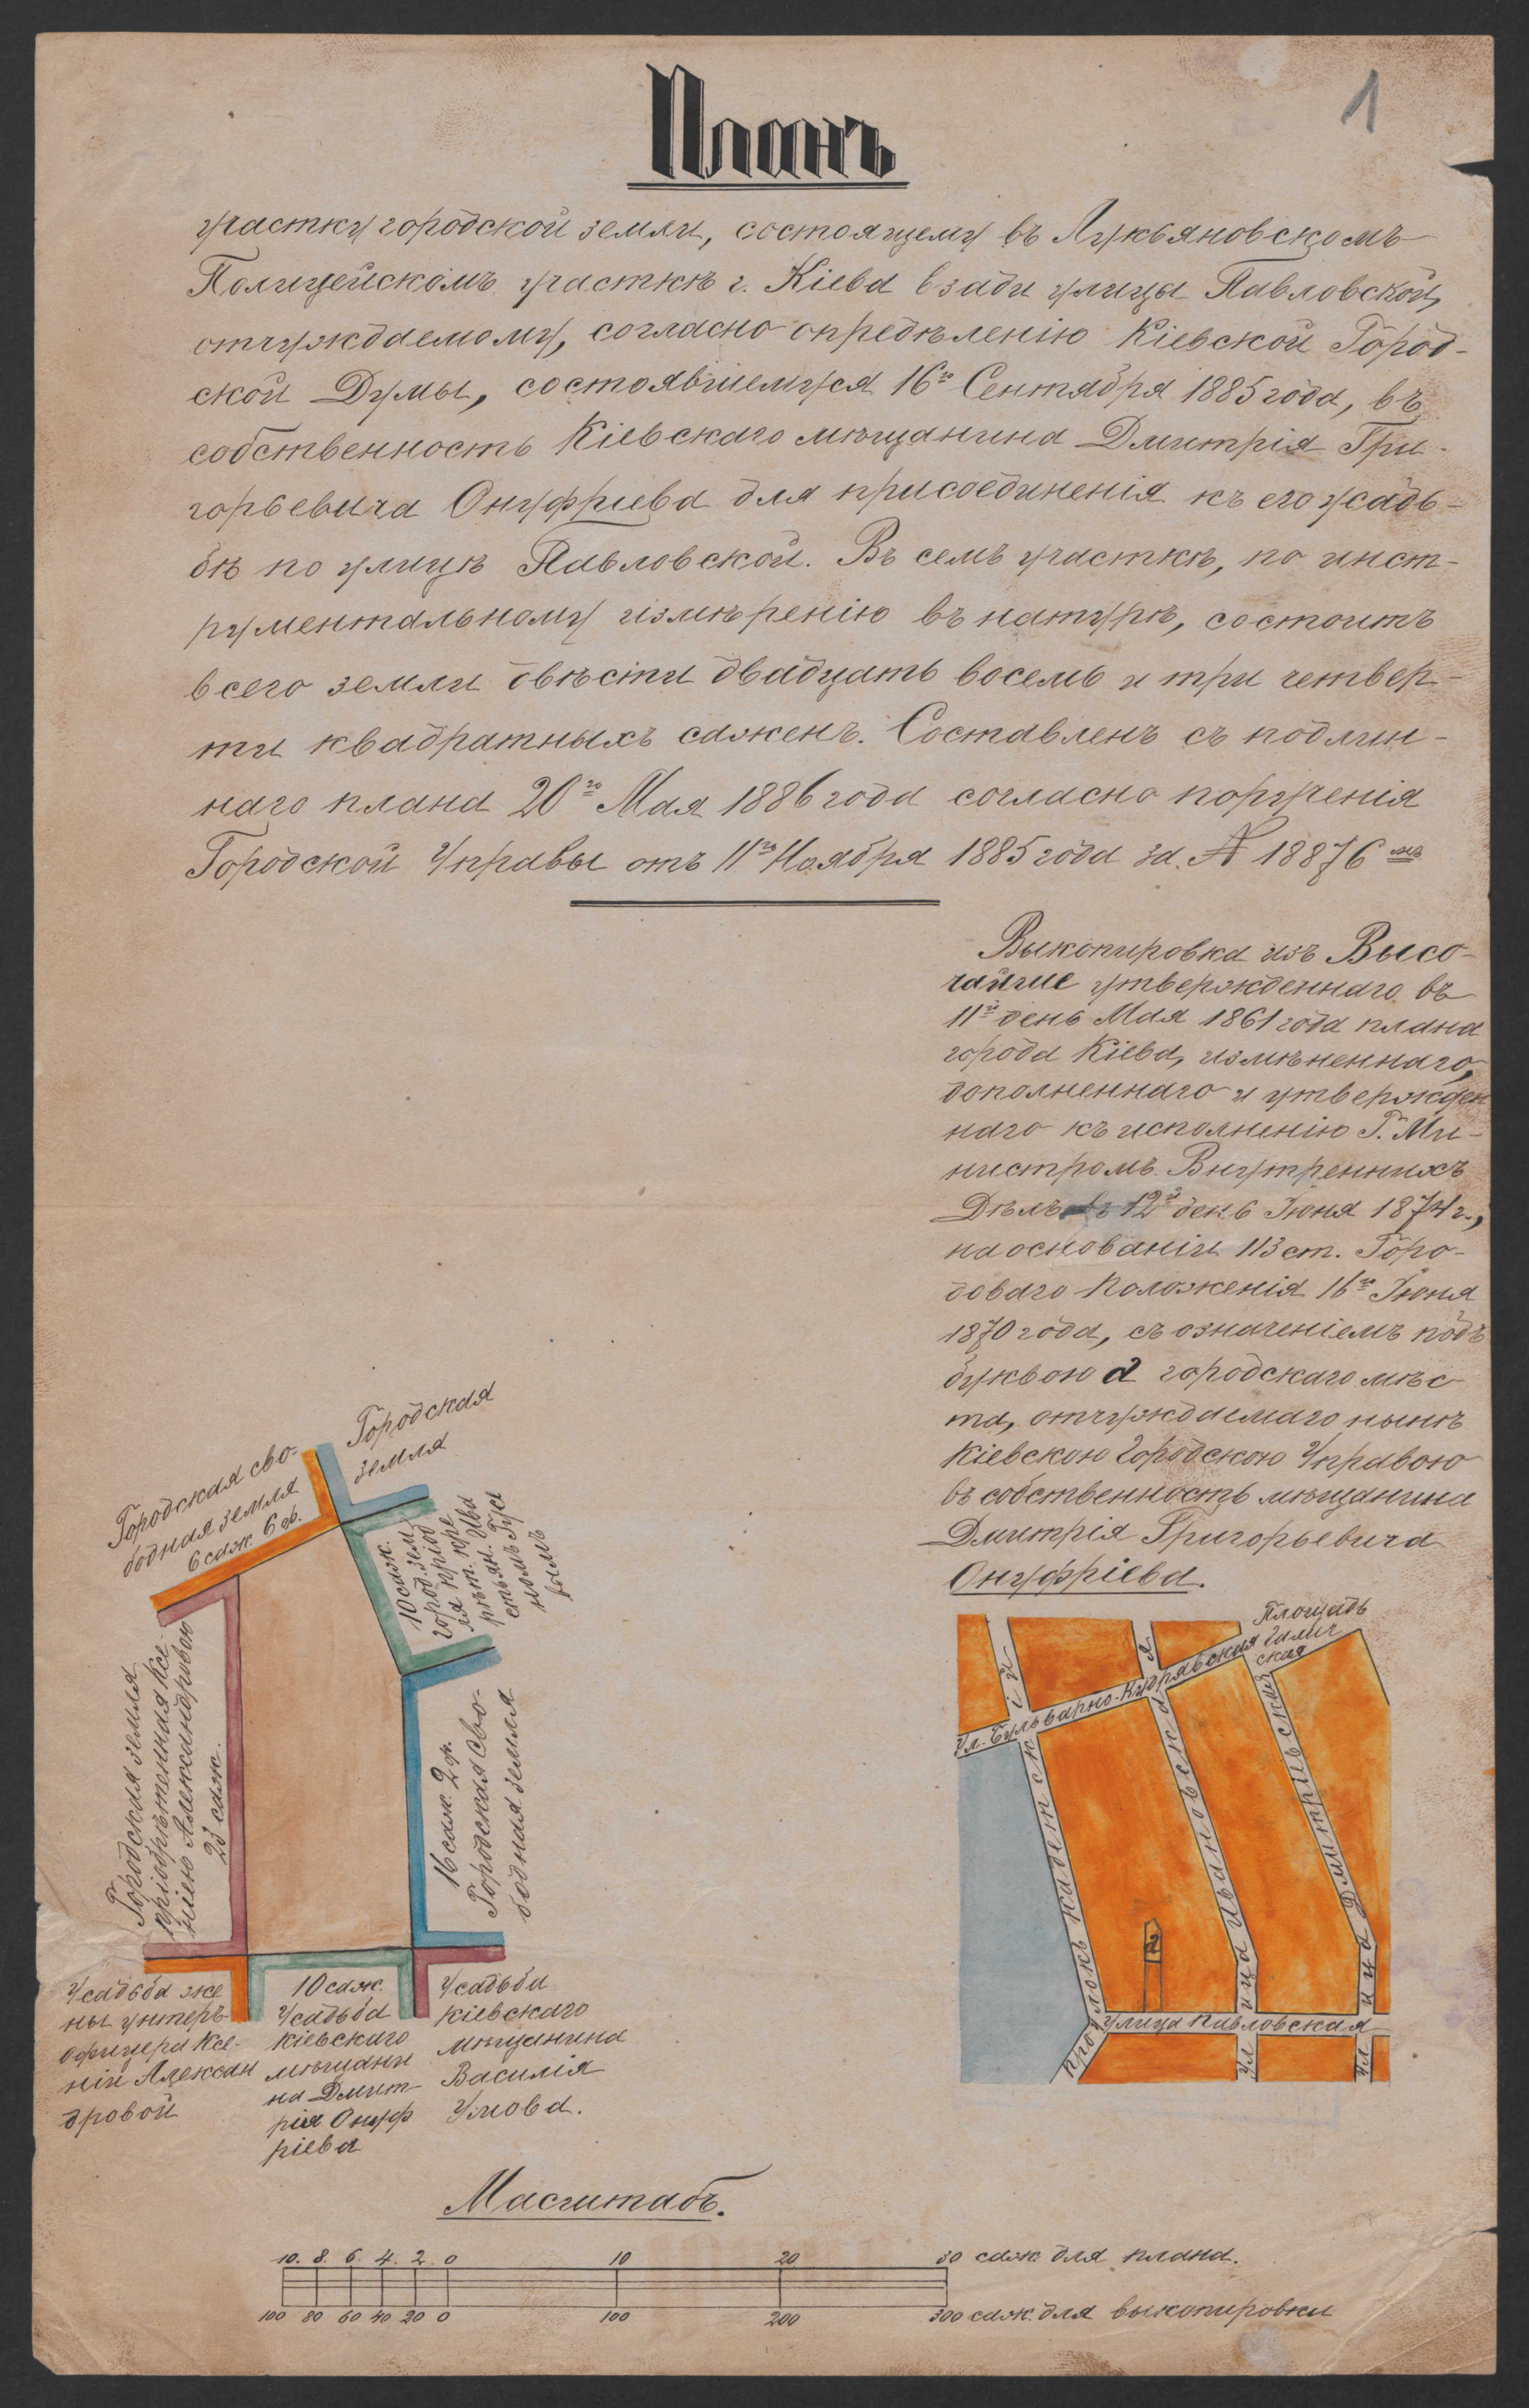 1
Планъ
участку городской земли, состоящему въ Лукьяновскомъ
Полицейскомъ участкѣ г. Кіева взади улицы Павловской,
отчуждаемому, согласно опредѣленію Кіевской Город-
ской Думы, состоявшемуся 16го Сентября 1885 года, въ
собственность Кіевскаго мѣщанина Дмитрія Гри-
горьевича Онуфріева для присоединенія къ его усадь-
бѣ по улицѣ Павловской. Въ семъ участкѣ, по инст-
рументальному измѣренію въ натурѣ, состоитъ
всего земли двѣсти двадцать восемь и три четвер-
ти квадратныхъ сажень. Составленъ съ подлин-
наго плана 20го Мая 1886 года согласно порученія
Городской Управы отъ 11го Ноября 1885 года за № 18876мъ
Выкопировка изъ Высо-
чайше утвержденнаго въ
11й день Мая 1861 года плана
города Кіева, измѣненнаго,
дополненнаго и утвержден
наго къ исполненію Г. Ми-
нистромъ Внутреннихъ
Дѣлъ въ 12й день Іюня 1874 г.,
на основаніи 113 ст. Горо-
доваго Положенія 16го Іюня
1870 года, съ означеніемъ подъ
буквою а городскаго мѣс-
та, отчуждаемаго нынѣ
Кіевскою Городскою Управою
въ собственность мѣщанина
Дмитрія Григорьевича
Онуфріева.
Городская сво-
бодная земля
6 саж. 6 ф.
Городская
земля
10 саж.
город. зем
ля пріоб
рѣт. кре
стьян. Ива
номъ Гусе
вымъ
Городская земля
пріобрѣтенная Ксе-
ніею Александровою
23 саж.
16 саж. 2 ф.
Городская сво-
бодная земля
Усадьба же
ны унтеръ-
офицера Ксе-
ніи Алексан
дровой
10 саж.
Усадьба
кіевскаго
мѣщани
на Дмит-
рія Онуф
ріева
Усадьба
кіевскаго
мѣщанина
Василія
Умова.
Площадь
Галич
ская
Ул. Бульварно-Кудрявская
проулокъ кадетскій
улица Ивановская
улица Дмитріевская
а
Улица Павловская
Масштабъ.
10. 8. 6. 4. 2. 0 10 20 30 саж. для плана.
100 80 60 40 20 0 100 200 300 саж. для выкопировки